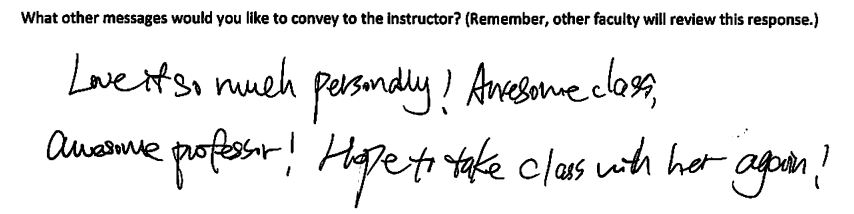 What other messages would you like to convey to the instructor? (Remember, other faculty will review this response.)
Love it so much personally! Awesome class,
awesome professor! Hope to take class with her again!